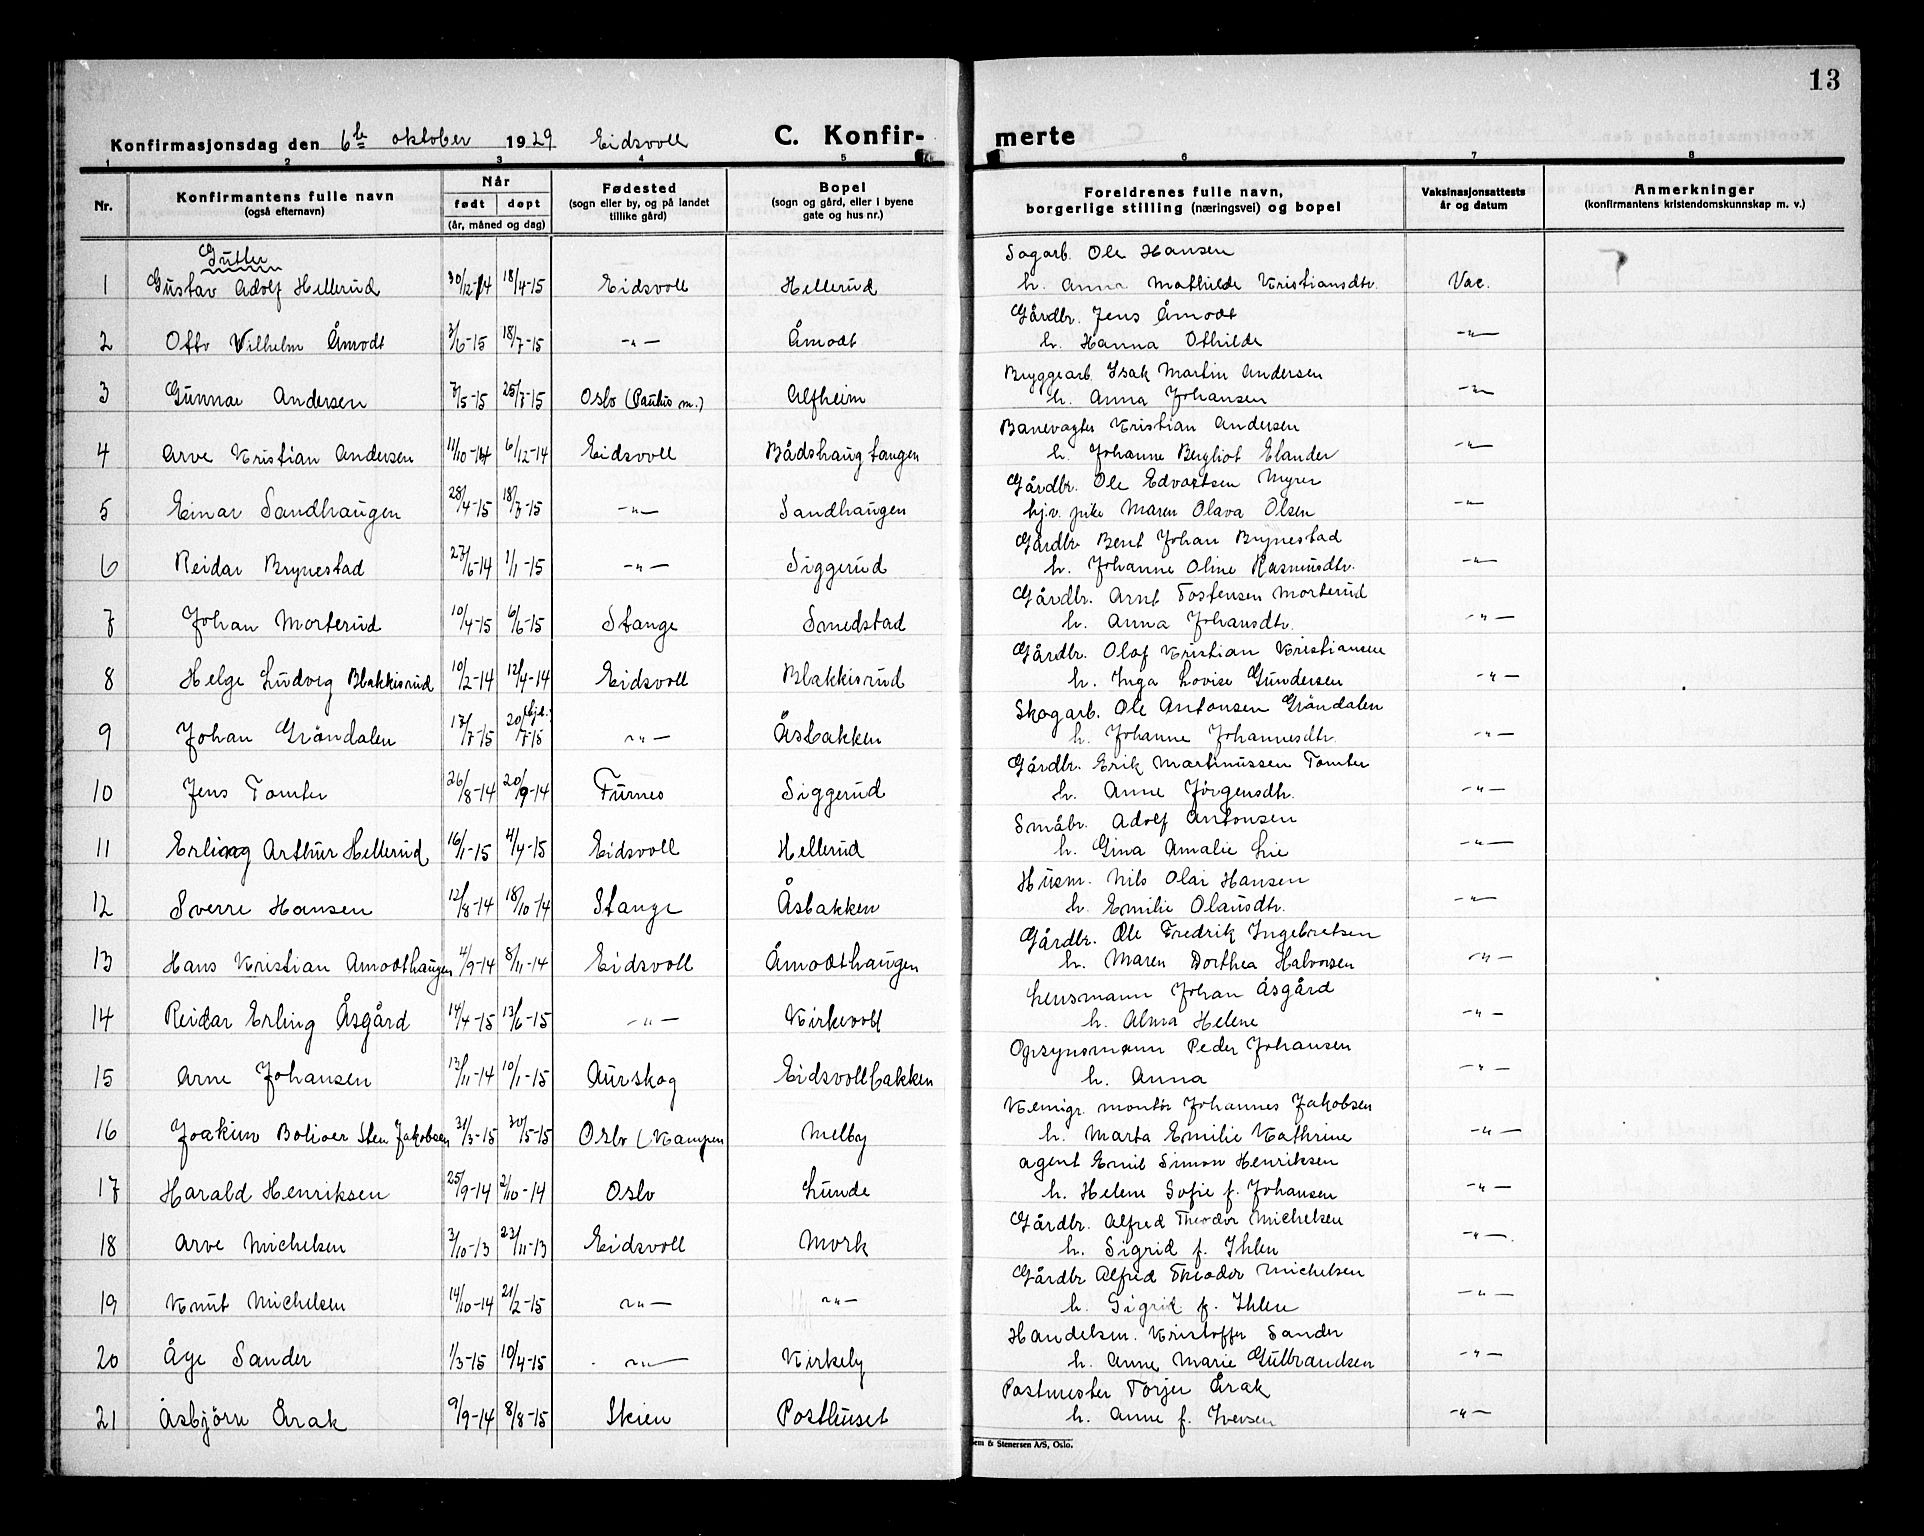 13
Konfirmasjonsdag den 6te oktober 1929 Eidsvoll C. Konfir- merte
1 2 3 4 5 6 7 8
Nr. Konfirmantens fulle navn (også efternavn) Når født døpt (år, måned og dag) Fødested (sogn eller by, og på landet tillike gård) Bopel (sogn og gård, eller i byene gate og hus nr.) Foreldrenes fulle navn, borgerlige stilling (næringsvei) og bopel Vaksinasjonsattests år og datum Anmerkninger (konfirmantens kristendomskunnskap m. v.)
Gutter
Sagarb. Ole Hansen
1 Gustav Adolf Hellerud 30/12-14 18/4-15 Eidsvoll Hellerud h. Anna Mathilde Kristiansdtr. Vac.
Gårdbr. Jens Åmodt
2 Otto Vilhelm Åmodt 3/6-15 18/7-15 -"- Åmodt h. Hanna Othilde -"-
Bryggearb. Isak Martin Andersen
3 Gunnar Andersen 7/5-15 25/7-15 Oslo (Paulus m.) Alfheim h. Anna Johansen -"-
Banevagter Kristian Andersen
4 Arve Kristian Andersen 11/10-14 6/12-14 Eidsvoll Bådshaugtangen h. Johanne Bergliot Elander -"-
Gårdbr. Ole Edvartsen Myrer
5 Einar Sandhaugen 28/4-15 18/7-15 -"- Sandhaugen hj.v. pike Maren Olava Olsen -"-
Gårdbr. Bent Johan Brynestad
6 Reidar Brynestad 27/6-14 1/1-15 -"- Siggerud h. Johanne Oline Rasmusdtr. -"-
Gårdbr. Arnt Tostensen Morterud
7 Johan Morterud 10/4-15 6/6-15 Stange Smedstad h. Anna Johansdtr. -"-
Gårdbr. Olaf Kristian Kristiansen
8 Helge Ludvig Blakkisrud 10/2-14 12/4-14 Eidsvoll Blakkisrud h. Inga Lovise Gundersen -"-
Skogarb. Ole Antonsen Gröndalen
9 Johan Gröndalen 17/7-15 20/7-15 (hj.d.) -"- Åsbakken h. Johanne Johannesdtr. -"-
Gårdbr. Erik Martinussen Tomter
10 Jens Tomter 26/8-14 20/9-14 Furnes Siggerud h. Anne Jörgensdtr. -"-
Småbr. Adolf Antonsen
11 Erling Arthur Hellerud 16/1-15 4/4-15 Eidsvoll Hellerud h. Gina Amalie Lie -"-
Husm. Nils Olai Hansen
12 Sverre Hansen 12/8-14 18/10-14 Stange Åsbakken h. Emilie Olausdtr. -"-
Gårdbr. Ole Fredrik Ingebretsen
13 Hans Kristian Amodthaugen 4/9-14 8/11-14 Eidsvoll Åmodthaugen h. Maren Dorthea Halvorsen -"-
Lensmann Johan Åsgård
14 Reidar Erling Åsgård 14/4-15 13/6-15 -"- Kirkevoll h. Alma Helene -"-
Opsynsmann Peder Johansen
15 Arne Johansen 13/11-14 10/1-15 Aurskog Eidsvollbakken h. Anna -"-
Kemigr. montör Johannes Jakobsen
16 Joakim Sten Jakobsen 31/3-15 30/5-15 Oslo (Kampen Melby h. Marta Emilie Kathrine -"-
Agent Emil Simon Henriksen
17 Harald Henriksen 25/9-14 2/10-14 Oslo Lunde h. Helene Sofie f. Johansen -"-
Gårdbr. Alfred Theodor Michelsen
18 Arve Michelsen 3/10-13 23/11-13 Eidsvoll Mork h. Sigrid f. Ihlen -"-
Gårdbr Alfred Theodor Michelsen
19 Knut Michelsen 14/10-14 21/2-15 -"- -"- h. Sigrid f. Ihlen -"-
Handelsm. Kristoffer Sander
20 Åge Sander 1/3-15 10/4-15 -"- Kirkeby h. Anne Marie Gulbrandsen -"-
Postmester Torjer Årak
21 Asbjörn Årak 9/9-14 8/8-15 Skien Posthuset h. Anne f. Iversen -"-
em & Stenersen A/S, Oslo.